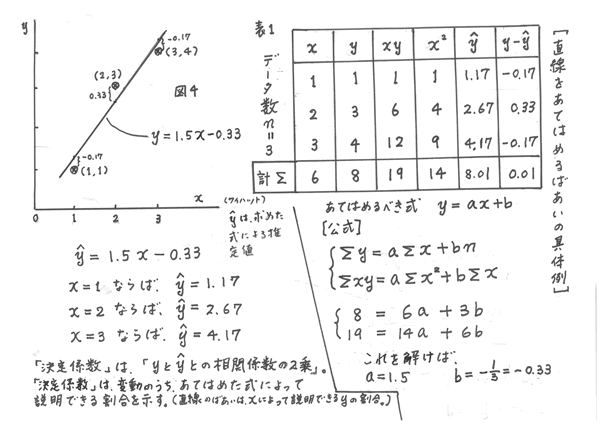 y
-0.17
(3,4)
(2,3)
0.33
図4
y=1.5x-0.33
-0.17
(1,1)
x
0 1 2 3
表1
データ数n=3
x y xy x² ŷ y-ŷ
1 1 1 1 1.17 -0.17
2 3 6 4 2.67 0.33
3 4 12 9 4.17 -0.17
計Σ 6 8 19 14 8.01 0.01
[直線をあてはめるばあいの具体例]
(ワイハット)
ŷは、求めた
式による推
定値
ŷ = 1.5x - 0.33
x=1 ならば、ŷ = 1.17
x=2 ならば、ŷ = 2.67
x=3 ならば、ŷ = 4.17
「決定係数」は、「yとŷとの相関係数の2乗」。
「決定係数」は、変動のうち、あてはめた式によって
説明できる割合を示す。(直線のばあいは、xによって説明できるyの割合。)
あてはめるべき式 y=ax+b
[公式]
Σy=aΣx+bn
Σxy=aΣx²+bΣx
8 = 6a + 3b
19 = 14a + 6b
これを解けば、
a=1.5 b=-1/3=-0.33